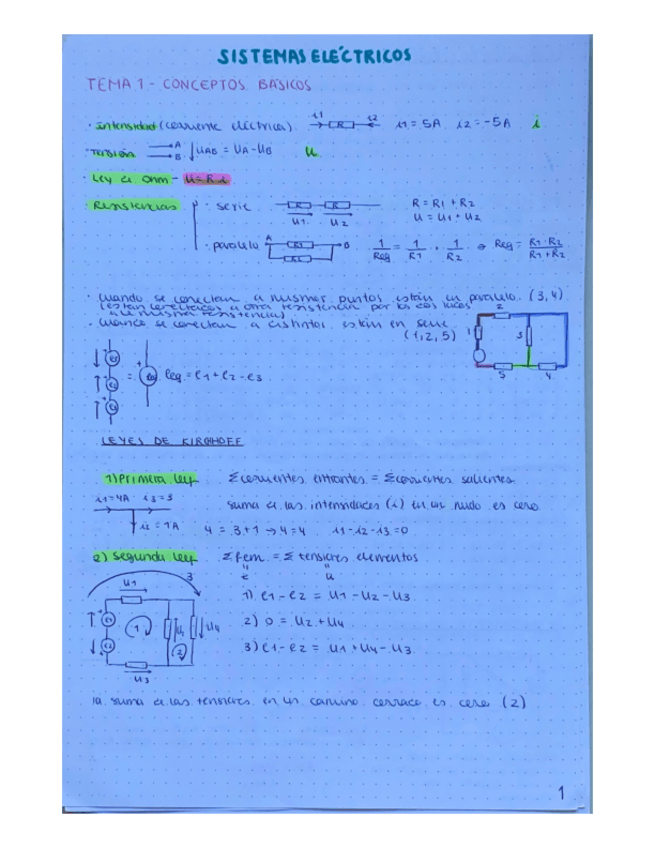 SISTEMAS ELÉCTRICOS
TEMA 1 - CONCEPTOS BÁSICOS
· Intensidad (corriente eléctrica) i1 R i2 i1 = 5A i2 = -5A i
· Tensión A B UAB = UA - UB u
· Ley de Ohm - u = R·i
· Resistencias · serie R R R = R1 + R2
u1 u2 u = u1 + u2
· paralelo A R1 B R2 1/Req = 1/R1 + 1/R2 ⇒ Req = R1·R2/R1+R2
· Cuando se conectan a mismos puntos están en paralelo. (3,4)
(están conectadas a otra resistencia por los dos lados
a la misma resistencia)
· Cuando se conectan a distintos están en serie
(1,2,5)
1 2 3 5 4
e1 e2 e3 = eq eeq = e1 + e2 - e3
LEYES DE KIRCHHOFF
1) Primera ley Σ corrientes entrantes = Σ corrientes salientes
i1 = 4A i3 = 3 suma de las intensidades (i) en un nudo es cero
i2 = 1A 4 = 3 + 1 → 4 = 4 i1 - i2 - i3 = 0
2) Segunda ley Σ fem = Σ tensiones elementos
e u
u1 3 1) e1 - e2 = u1 - u2 - u3
e1 1 u4 2) 0 = u2 + u4
e2 2 3) e1 - e2 = u1 + u4 - u3
u3
la suma de las tensiones en un camino cerrado es cero (2)
1